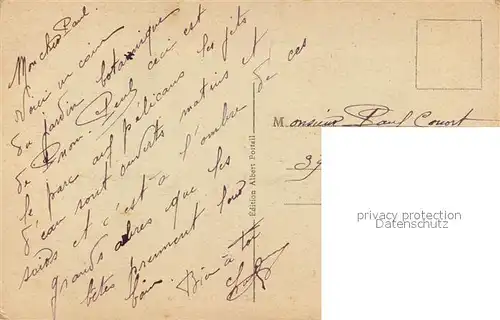 Mon cher Paul.
Voici un coin
du jardin botanique
de Pnom-Penh ceci est
le parc aux pélicans les jets
d'eau sont ouverts matins et
soirs et c'est à l'ombre de ces
grands arbres que les
bêtes prennent leur
bain. Bien à toi
Edition Albert Portail
Monsieur Paul
39
privacy protection
Datenschutz